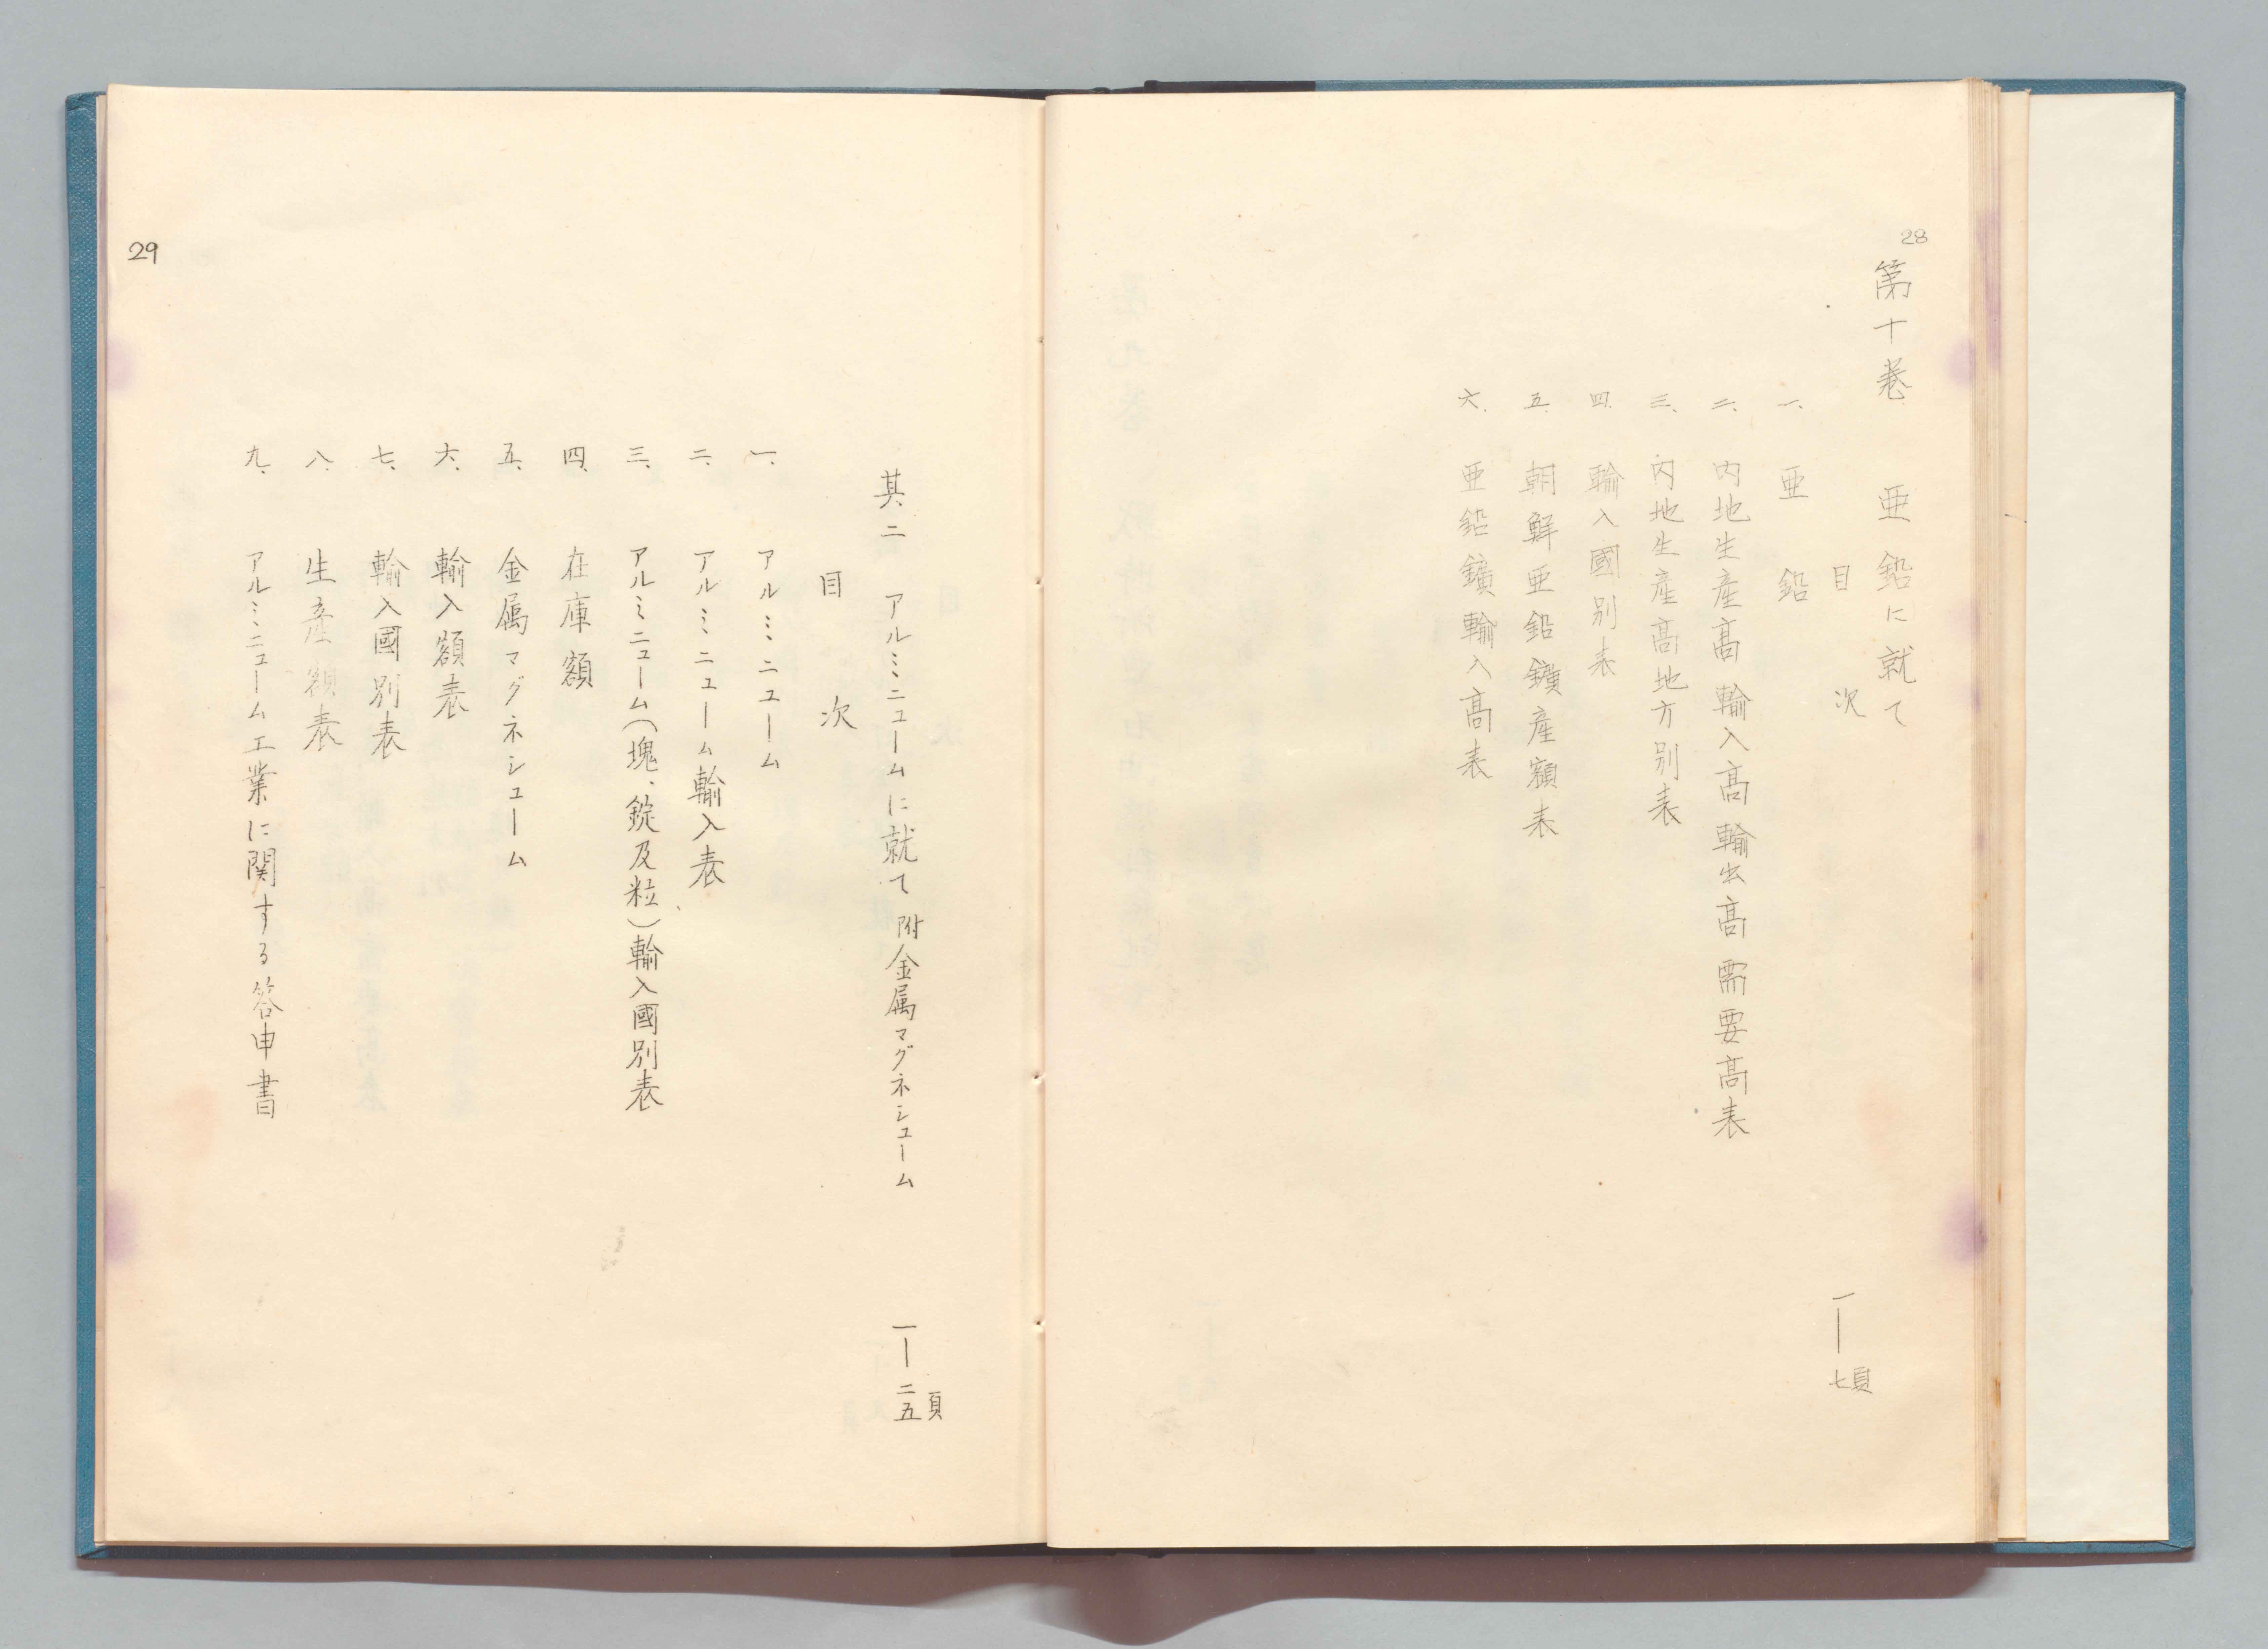 28
第十巻　亜鉛に就て
目次
一―七頁
一、亜鉛
二、内地生産高輸入高輸出高需要高表
三、内地生産高地方別表
四、輸入國別表
五、朝鮮亜鉛鑛産額表
六、亜鉛鑛輸入高表
其二　アルミニュームに就て　附金属マグネシューム
一―二五頁
目次
一、アルミニューム
二、アルミニューム輸入表
三、アルミニューム（塊、錠及粒）輸入國別表
四、在庫額
五、金属マグネシューム
六、輸入額表
七、輸入國別表
八、生産額表
九、アルミニューム工業に関する答申書
29